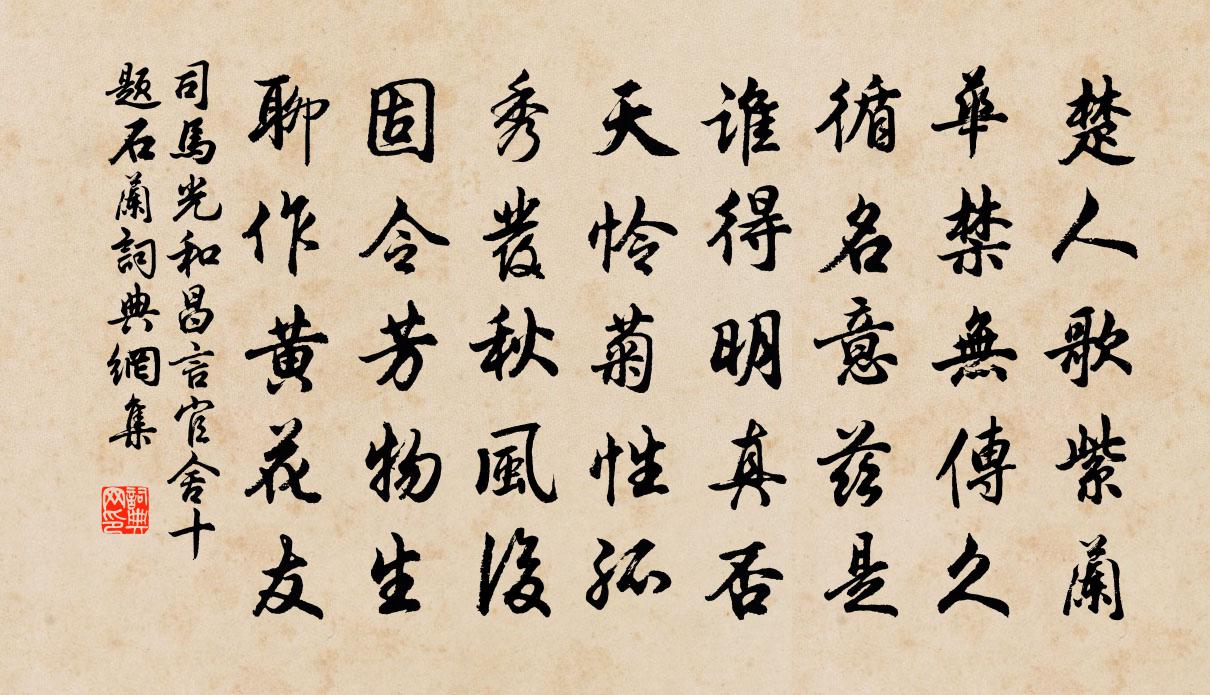 楚人歌紫蘭
華禁無傳久
循名意茲是
谁得明真否
天怜菊性孤
秀發秋風後
固令芳物生
聊作黄花友
司馬光和昌言官舍十
題石蘭詞典網集
詞典
网印